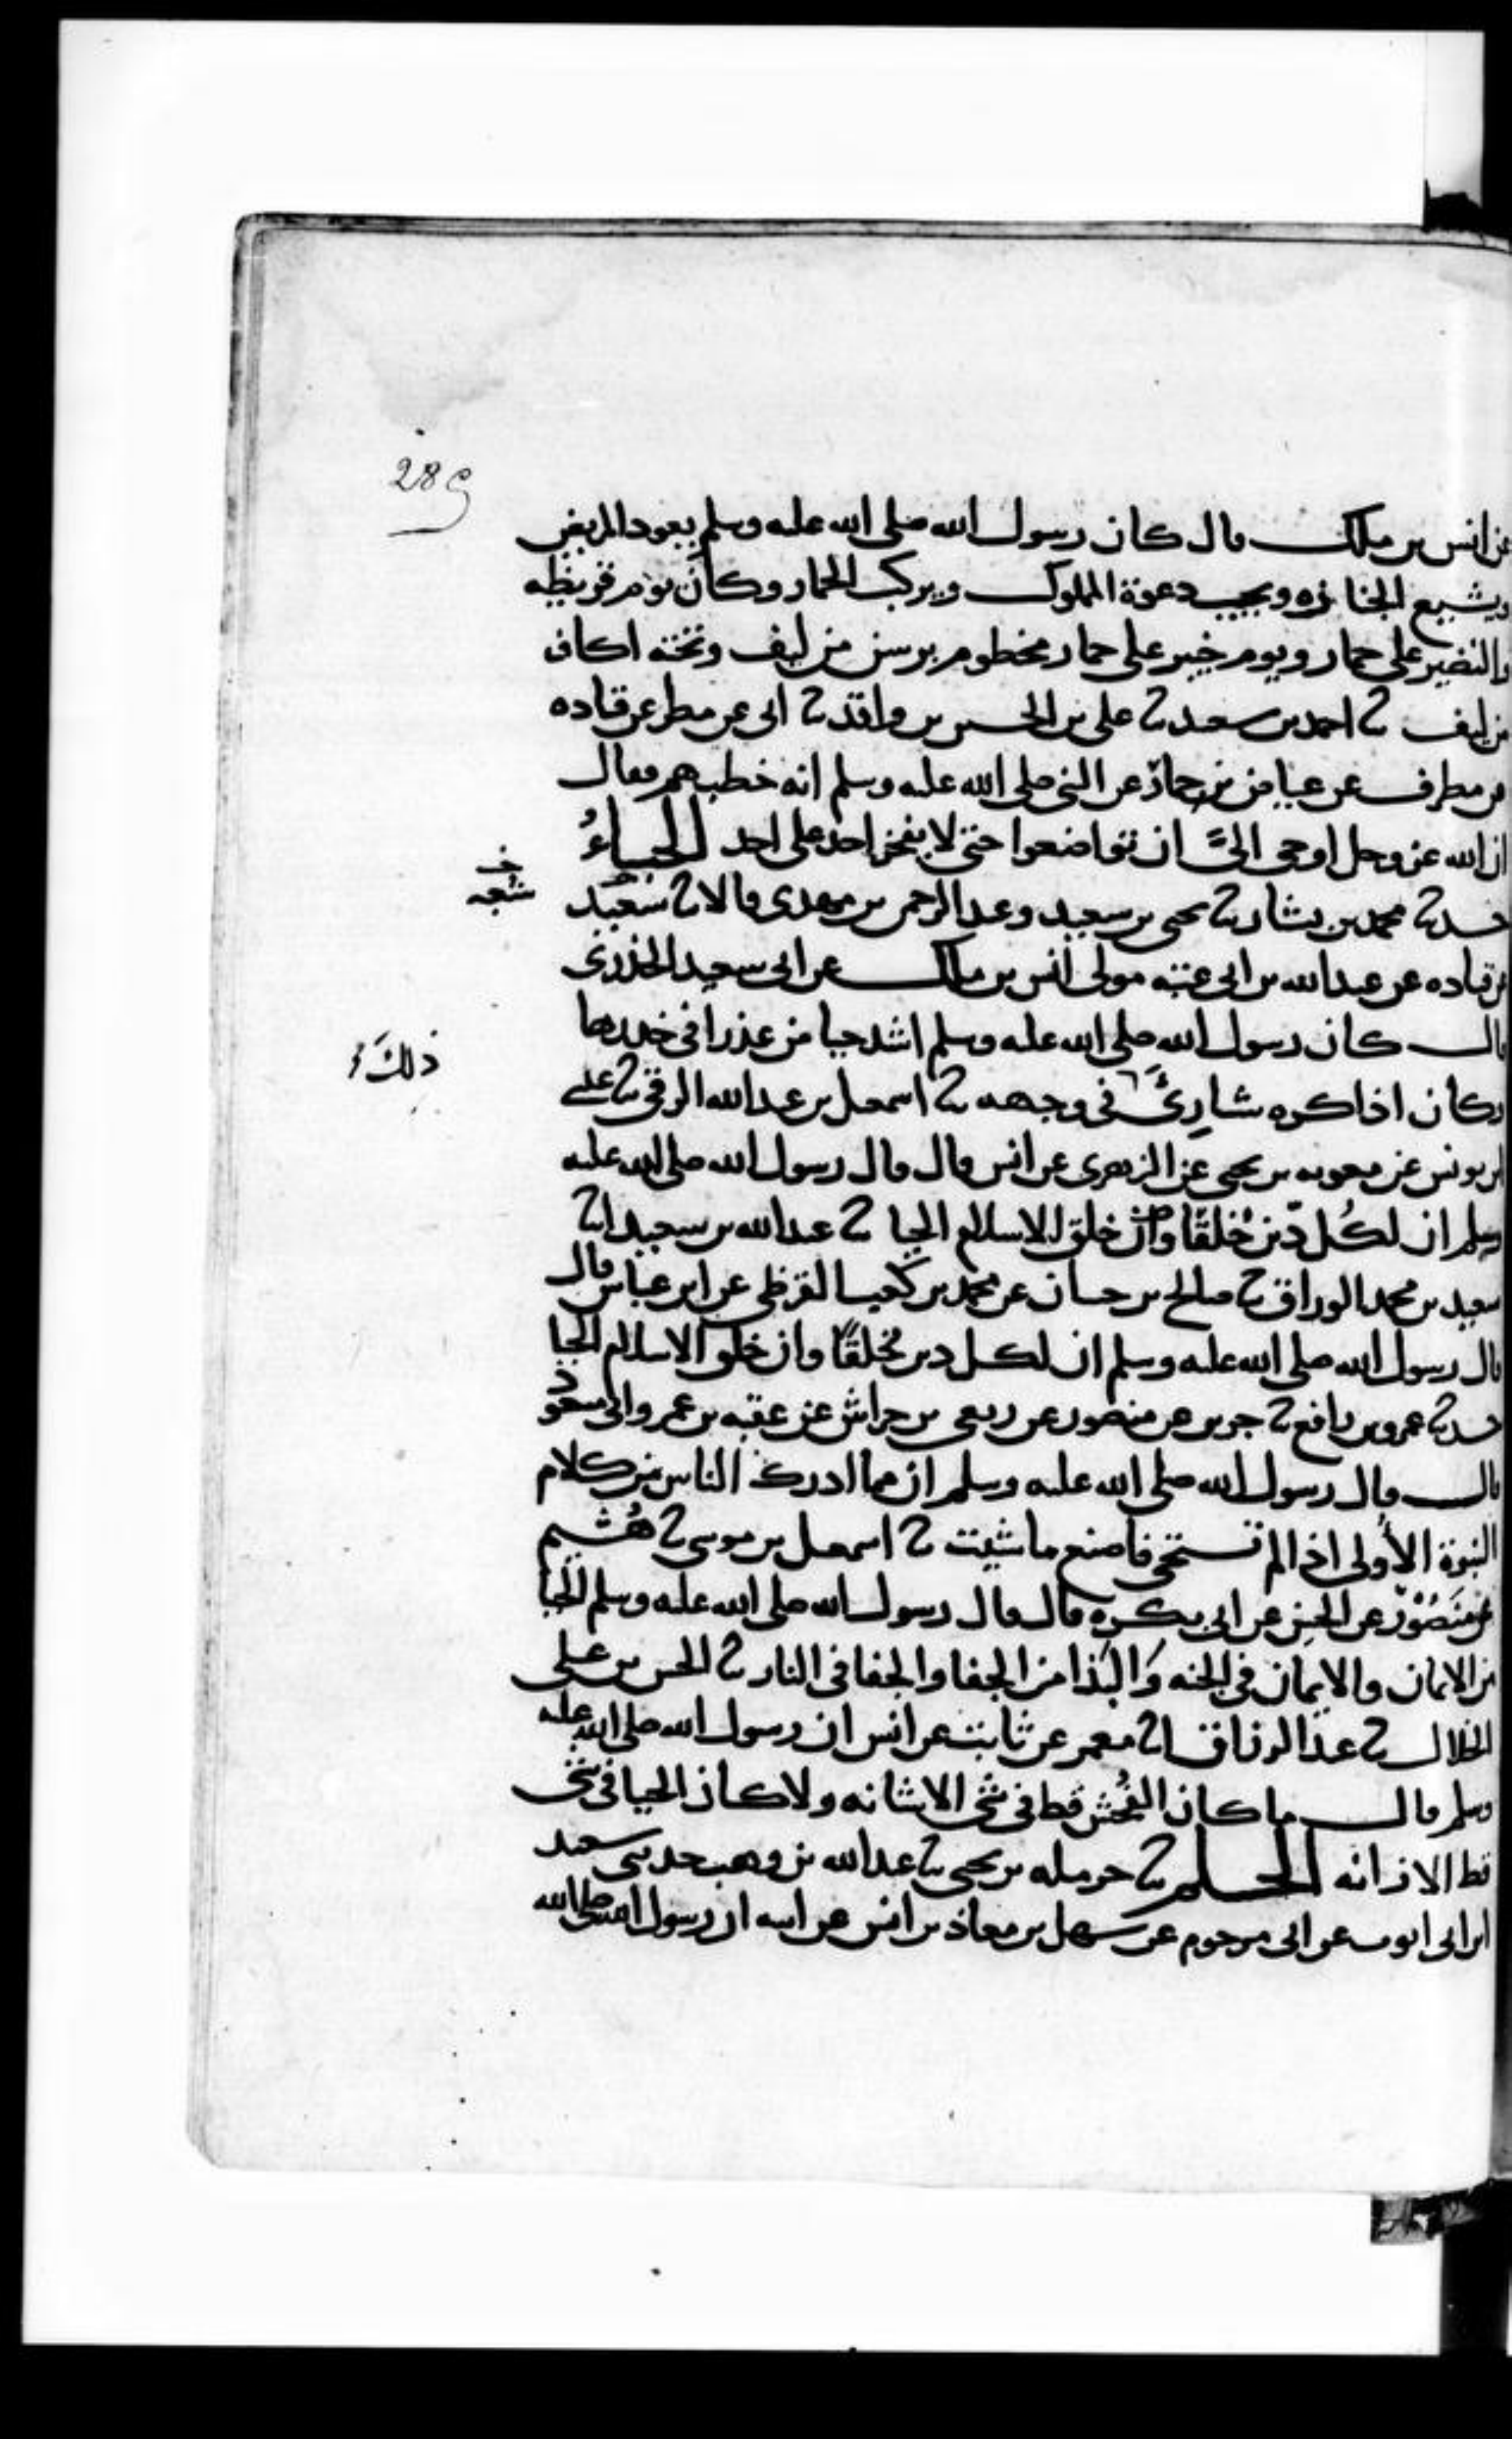 289
عن انس بن ملك قال كان رسول الله صلى الله عليه وسلم يعود المريض
ويشيع الجنازه ويجيب دعوة المملوك ويركب الحمار وكان يوم قريظه
والنضير على حمار ويوم خيبر على حمار مخطوم برسن من ليف وتحته اكاف
من ليف ثنا احمد بن سعيد ثنا على بن الحسين بن واقد ثنا ابى عن مطر عن قتاده
عن مطرف عن عياض بن حمار عن النبى صلى الله عليه وسلم انه خطبهم فقال
ان الله عز وجل اوحى الىَّ ان تواضعوا حتى لا يفخر احد على احد الحياءُ
حدثنا محمد بن بشار ثنا يحيى بن سعيد وعبد الرحمن بن مهدى قالا ثنا سعيد
خ شعبه
عن قتاده عن عبد الله بن ابى عتبه مولى انس بن مالك عن ابى سعيد الخدرى
قال كان رسول الله صلى الله عليه وسلم اشد حيا من عذرا فى خدرها
وكان اذا كره شيا رئى فى وجهه ثنا اسمعيل بن عبد الله الرقى ثنا على
ذلك
بن يونس عن معويه بن يحيى عن الزهرى عن انس قال قال رسول الله صلى الله عليه
وسلم ان لكُل دين خُلقًا وان خلق الاسلام الحيا ثنا عبد الله بن سعيد ثنا
سعيد بن محمد الوراق ثنا صالح بن حسان عن محمد بن كعب القرظى عن ابن عباس قال
قال رسول الله صلى الله عليه وسلم ان لكل دين خُلقًا وان خلق الاسلام الحيا
حدثنا عمرو بن رافع ثنا جرير عن منصور عن ربعى بن حراش عن عقبه بن عمرو ابى مسعود
قال قال رسول الله صلى الله عليه وسلم ان مما ادرك الناس من كلام
النبوة الأولى اذا لم تستحى فاصنع ما شيت ثنا اسمعيل بن موسى ثنا هُشيم
عن مَنصُوْر عن الحسن عن ابى بكره قال قال رسول الله صلى الله عليه وسلم الحيا
من الايمان والايمان فى الجنه وَالبَذا من الجفا والجفا فى النار ثنا الحسن بن على
الخلال ثنا عبد الرزاق انا معمر عن ثابت عن انس ان رسول الله صلى الله عليه
وسلم قال ما كان الفُحش قط فى شى الا شانه ولا كان الحيا فى شى
قط الا زانه الحلم ثنا حرمله بن يحيى ثنا عبد الله بن وهب حدثنى سعيد
ابن ابى ايوب عن ابى مرحوم عن سهل بن معاذ بن انس عن ابيه ان رسول الله صلى الله